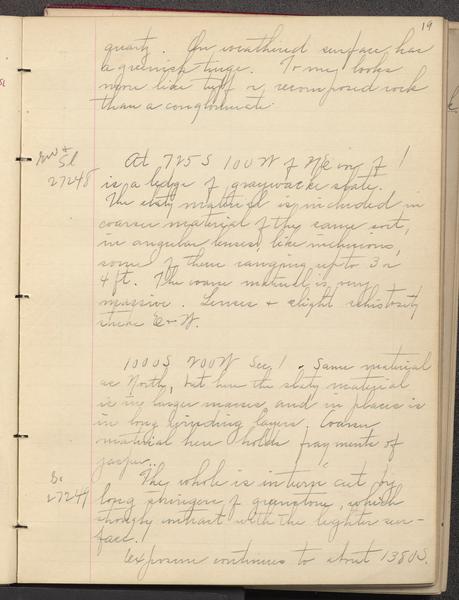 19
quartz. On weathered surface has
a greenish tinge. To me looks
more like tuff or recomposed rock
than a conglomerate.
Gw &
Sl
27248
At 725 S 100 W of NE cor of 1
is a ledge of graywacke slate.
The slaty material is included in
coarser material of the same sort,
in angular lenses, like inclusions,
some of them ranging up to 3 or
4 ft. The coarse material is very
massive. Lenses & slight schistosity
strike E & W.
1000 S 200 W Sec 1. Same material
as North, but here the slaty material
is in larger masses and in places is
in long winding layers. Coarser
material here holds fragments of
jasper.
27249
The whole is in turn cut by
long stringers of greenstone, which
strongly contrast with the lighter sur-
face.
Exposure continues to about 1380 S.